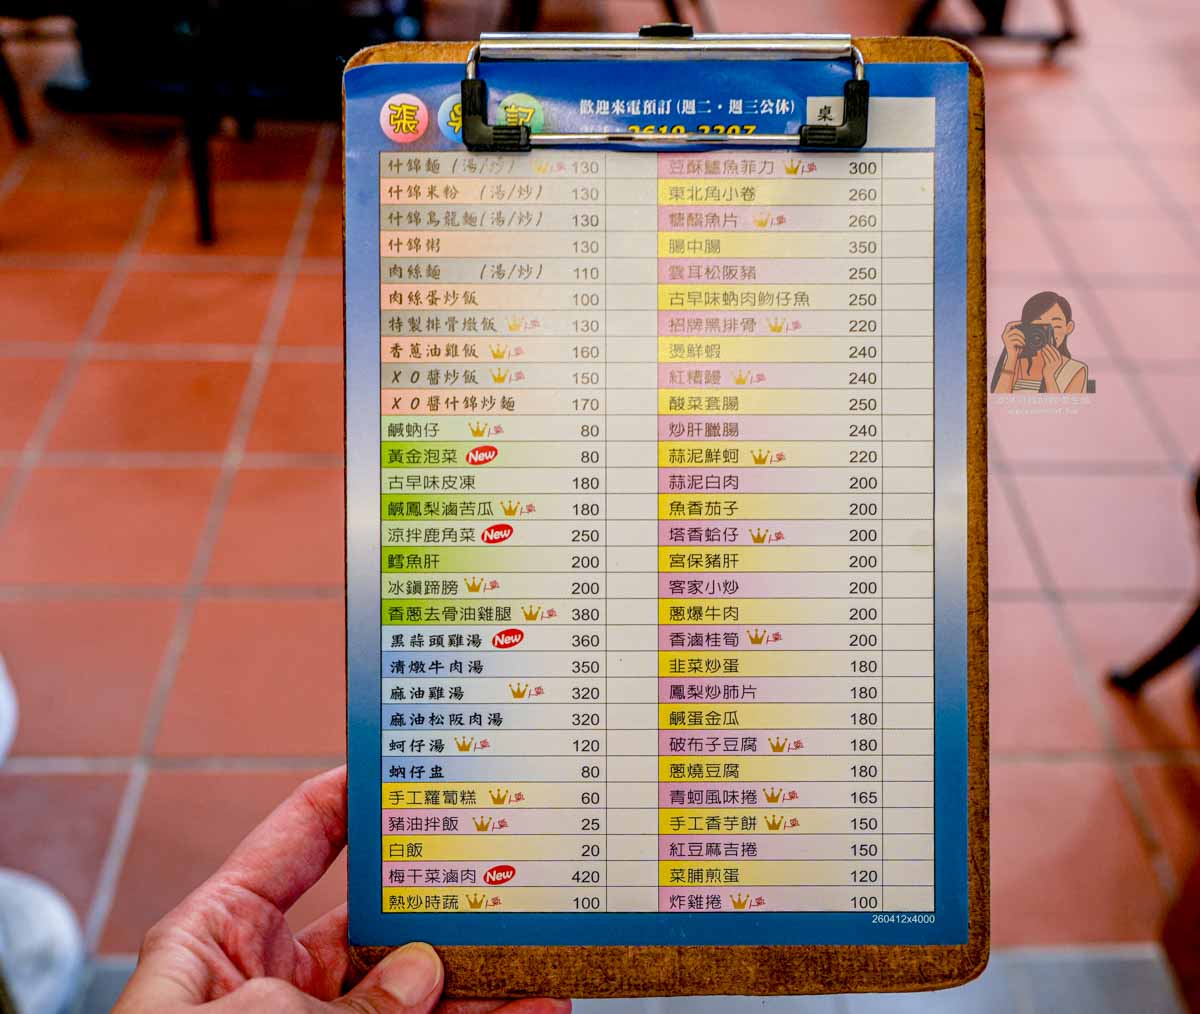 張 吳 記
歡迎來電預訂(週二・週三公休)
2610-2207
桌
什錦麵 (湯/炒) 人氣 130
什錦米粉 (湯/炒) 130
什錦烏龍麵(湯/炒) 130
什錦粥 130
肉絲麵 (湯/炒) 110
肉絲蛋炒飯 100
特製排骨燉飯 人氣 130
香蔥油雞飯 人氣 160
XO醬炒飯 人氣 150
XO醬什錦炒麵 170
鹹蚋仔 人氣 80
黃金泡菜 New 80
古早味皮凍 180
鹹鳳梨滷苦瓜 人氣 180
涼拌鹿角菜 New 250
鱈魚肝 200
冰鎮蹄膀 人氣 200
香蔥去骨油雞腿 人氣 380
黑蒜頭雞湯 New 360
清燉牛肉湯 350
麻油雞湯 人氣 320
麻油松阪肉湯 320
蚵仔湯 人氣 120
蚋仔盅 80
手工蘿蔔糕 人氣 60
豬油拌飯 人氣 25
白飯 20
梅干菜滷肉 New 420
熱炒時蔬 人氣 100
豆酥鱸魚菲力 人氣 300
東北角小卷 260
糖醋魚片 人氣 260
腸中腸 350
雲耳松阪豬 250
古早味蚋肉魩仔魚 250
招牌黑排骨 人氣 220
燙鮮蝦 240
紅糟鰻 人氣 240
酸菜套腸 250
炒肝臘腸 240
蒜泥鮮蚵 人氣 220
蒜泥白肉 200
魚香茄子 200
塔香蛤仔 人氣 200
宮保豬肝 200
客家小炒 200
蔥爆牛肉 200
香滷桂筍 人氣 200
韭菜炒蛋 180
鳳梨炒肺片 180
鹹蛋金瓜 180
破布子豆腐 人氣 180
蔥燒豆腐 180
青蚵風味捲 人氣 165
手工香芋餅 人氣 150
紅豆麻吉捲 150
菜脯煎蛋 120
炸雞捲 人氣 100
260412x4000